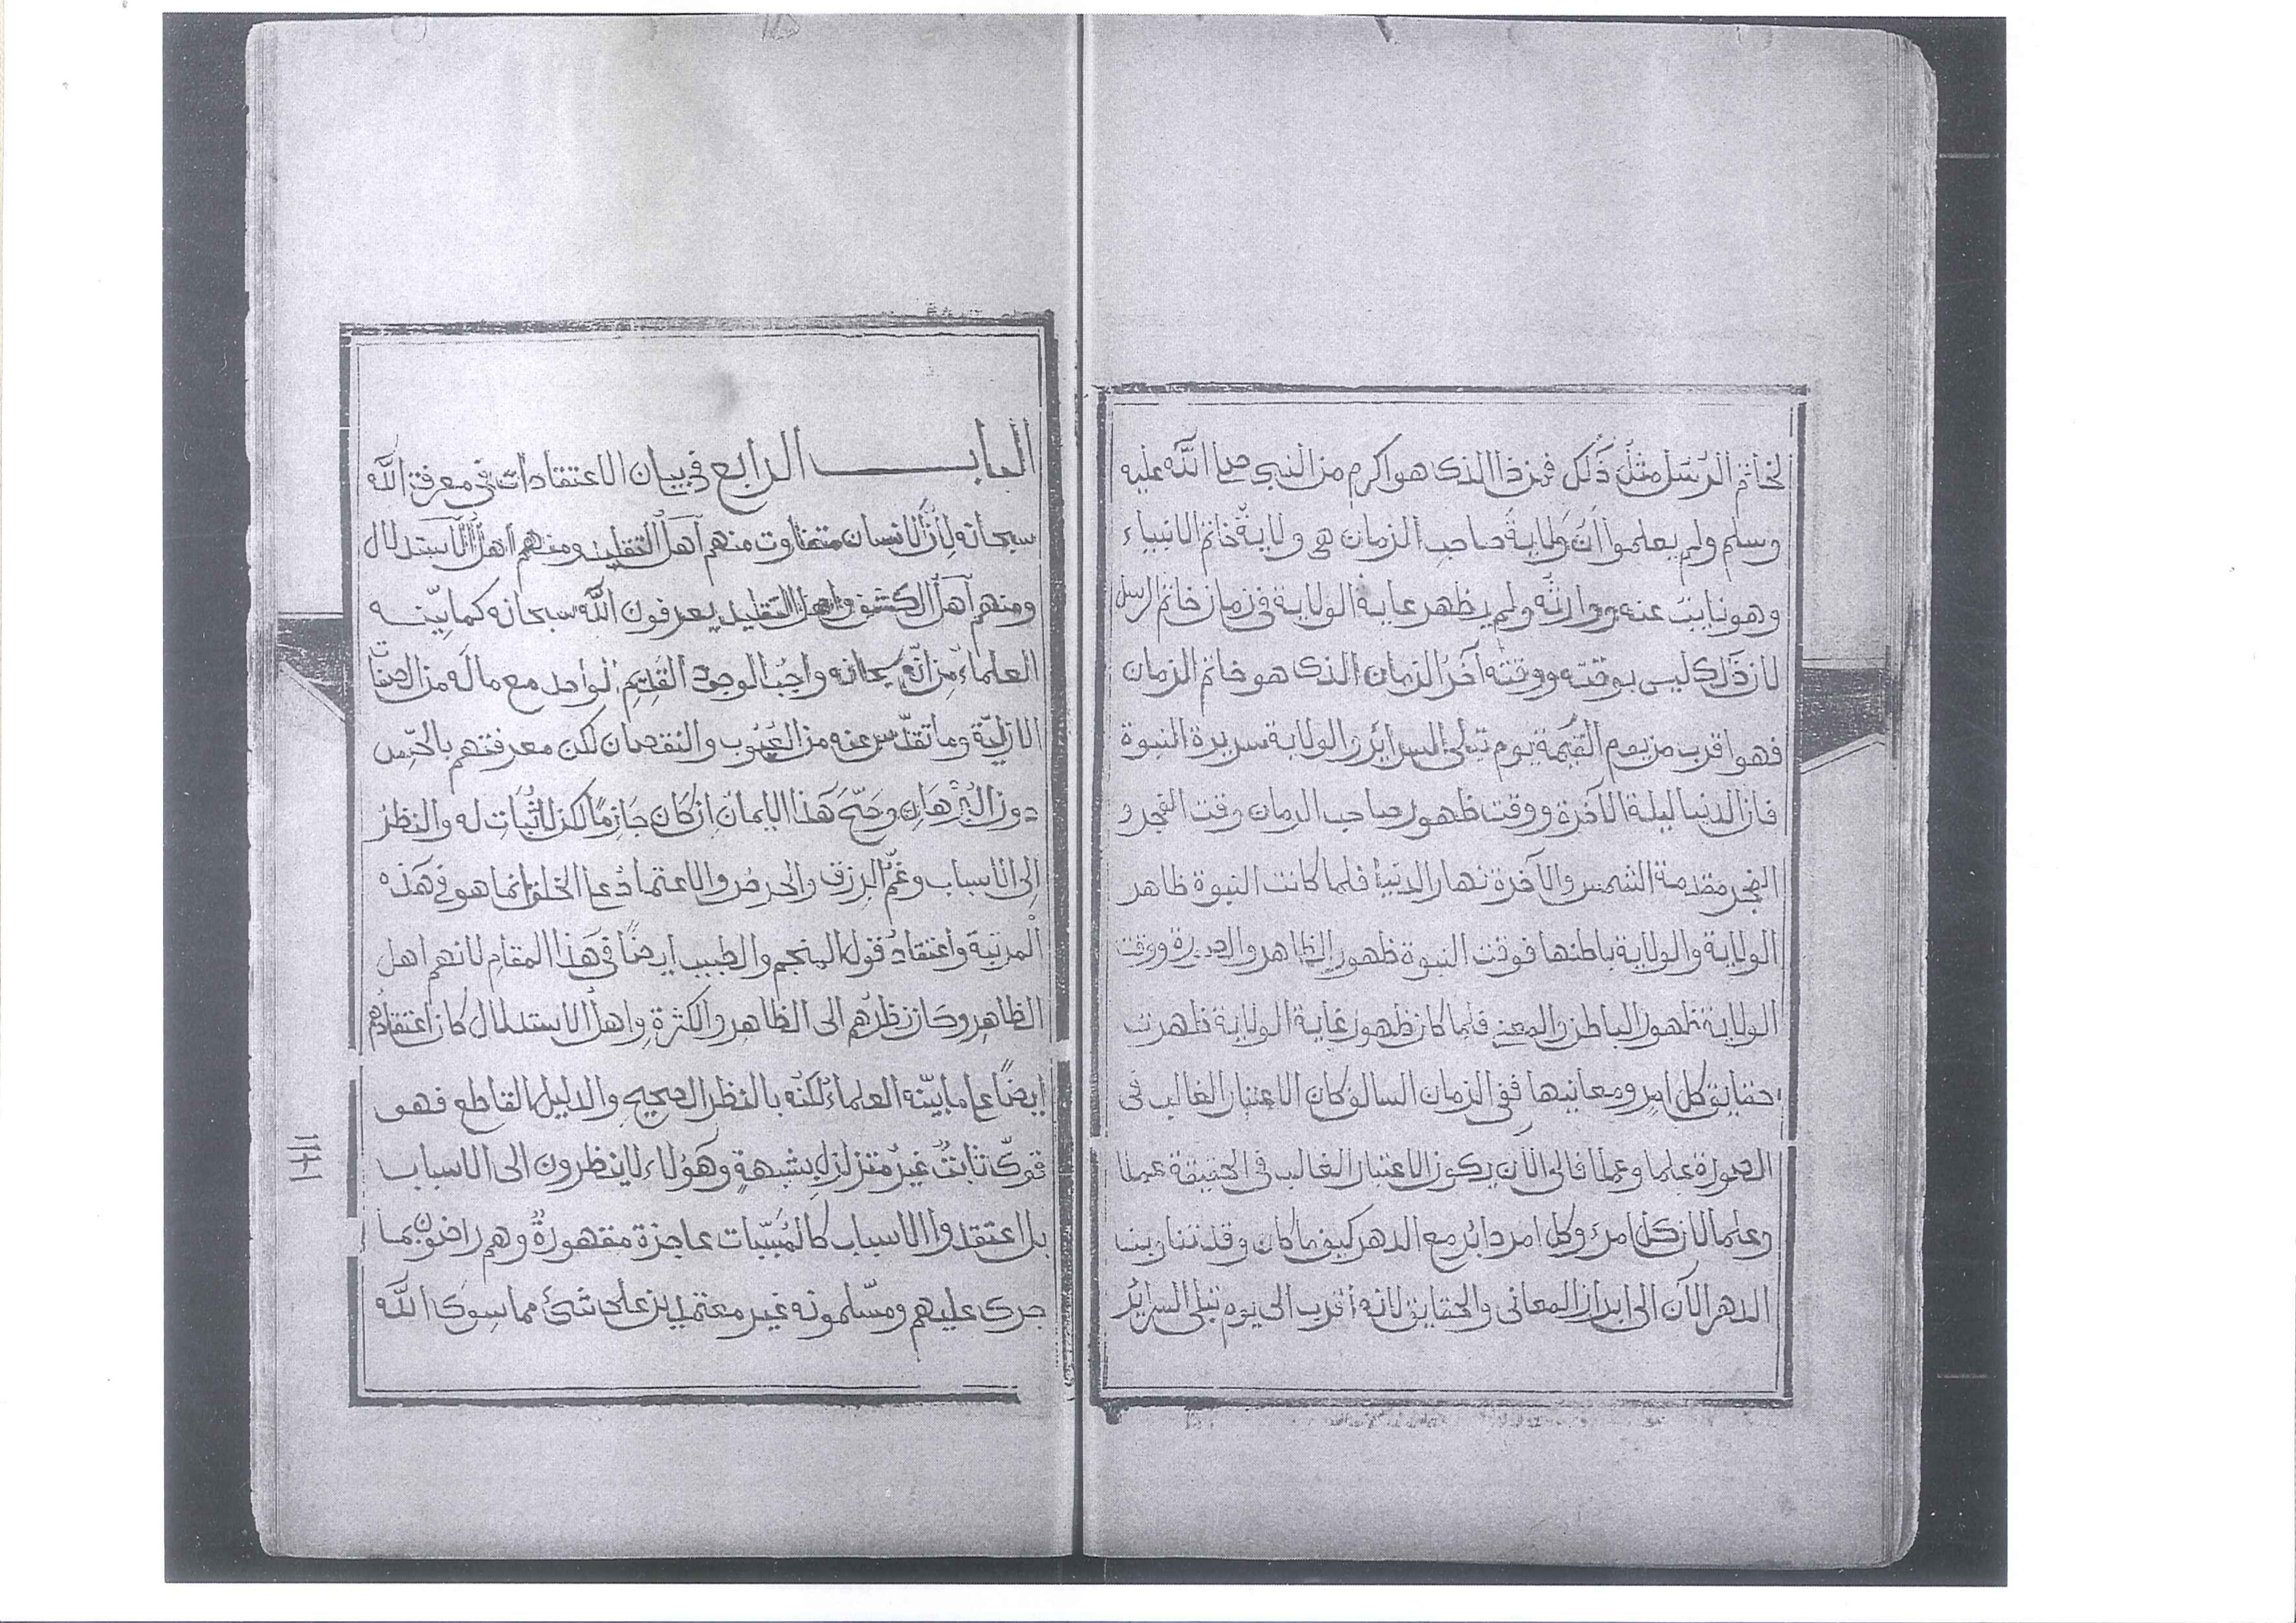 لخاتم الرسل مثل ذلك فمن ذا الذى هو اكرم من النبى صلى الله عليه
وسلم ولم يعلموا أن ولاية صاحب الزمان هى ولاية خاتم الانبياء
وهو نايب عنه ووارثه ولم يظهر غاية الولاية فى زمان خاتم الرسل
لان ذلك ليس بوقته ووقته آخر الزمان الذى هو خاتم الزمان
فهو اقرب من يوم القيمة يوم تبلى السرائر والولاية سريرة النبوة
فان الدنيا ليلة الآخرة ووقت ظهور صاحب الزمان وقت الفجر و
الفجر مقدمة الشمس والآخرة نهار الدنيا فلما كانت النبوة ظاهر
الولاية والولاية باطنها فوقت النبوة ظهور الظاهر والصورة ووقت
الولاية ظهور الباطن والمعنى فلما كان ظهور غاية الولاية ظهرت
حقايق كل امر ومعانيها ففى الزمان السالف كان الاعتبار الغالب فى
الصورة علما وعملا فالى الآن يكون الاعتبار الغالب فى الحقيقة عملا
وعلما لان كل امرء وكل امر دائر مع الدهر كيف ما كان وقد
الدهر الآن الى ابراز المعانى والحقايق لانه اقرب الى يوم تبلى السرائر
الباب الرابع فى بيان الاعتقادات فى معرفة الله
سبحانه لأن الانسان متفاوت منهم أهل التقليد ومنهم أهل الاستدلال
ومنهم أهل الكشف واهل التقليد يعرفون الله سبحانه كما بيّنه
العلماء من انّه سبحانه واجب الوجود القديم الواحد مع ماله من الصفات
الازليّة وما تقدّس عنه من العيوب والنقصان لكن معرفتهم بالحسّ
دون البرهان وصحّ هذا الايمان ان كان جازمًا لكن لا ثبات له والنظر
إلى الاسباب وغمّ الرزق والحرص والاعتماد على الخلق انما هو فى هذه
المرتبة واعتقاد قول المنجم والطبيب ايضًا فى هذا المقام لانهم اهل
الظاهر وكان نظرهم الى الظاهر والكثرة واهل الاستدلال كان اعتقادهم
ايضًا على ما بيّنه العلماء لكنه بالنظر الصحيح والدليل القاطع فهو
قوىّ ثابت غير متزلزل بشبهة وهؤلاء لا ينظرون الى الاسباب
بل اعتقدوا الاسباب كالمسبّبات عاجزة مقهورة وهم راضون بما
جرى عليهم ومسّلمونه غير معتمدين على شئ مما سوى الله